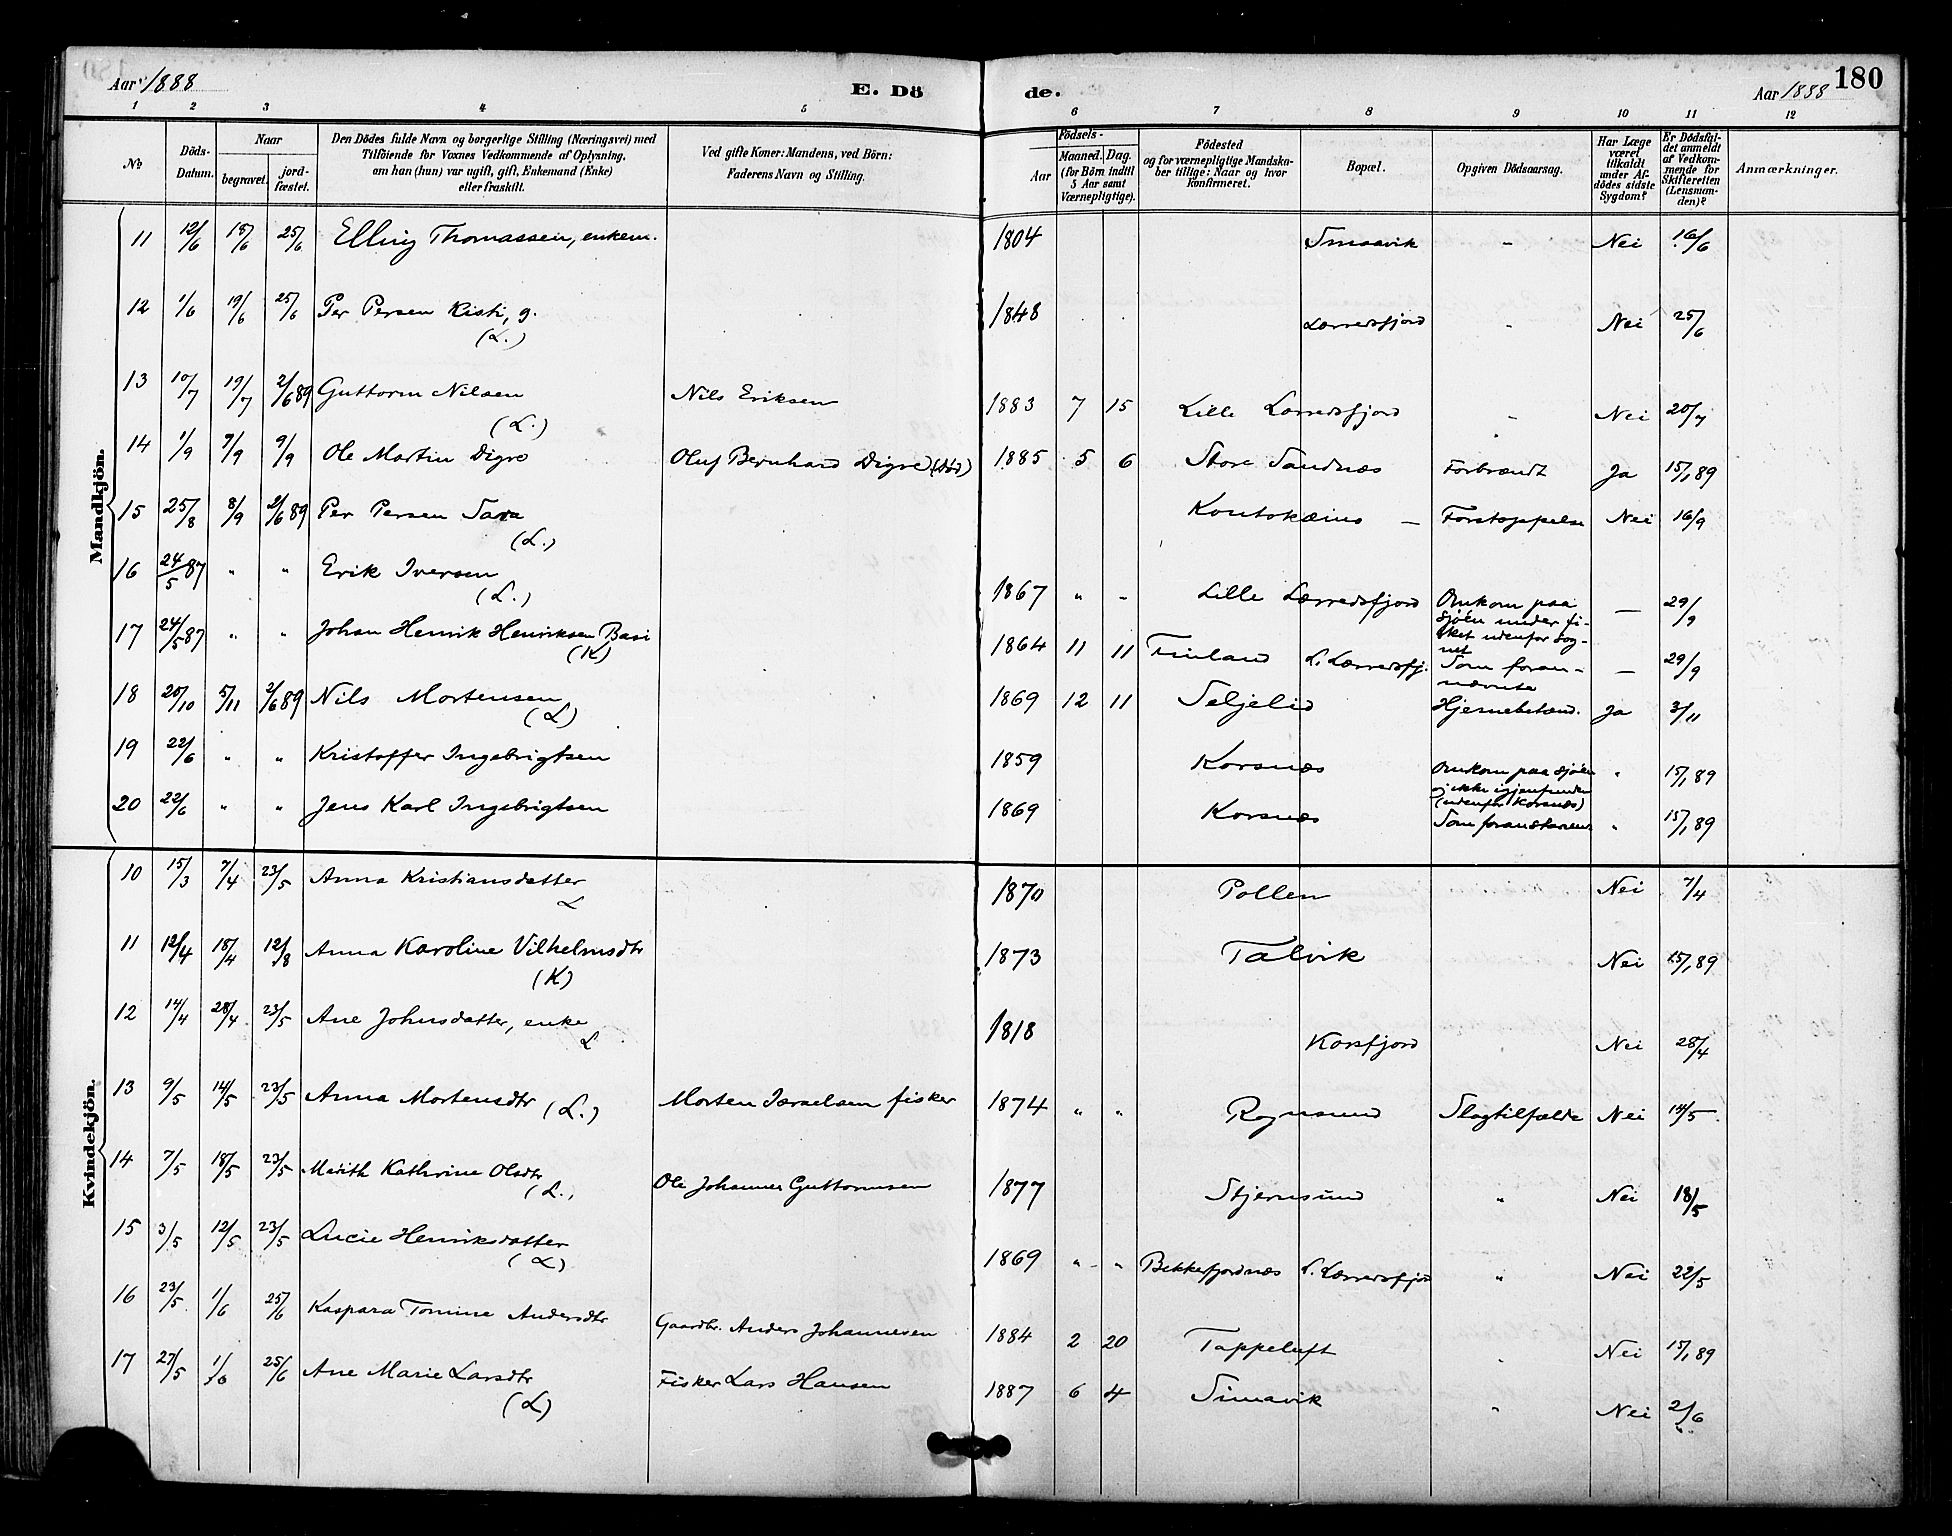 Aar 1888
E. Dö
de.
Aar 1888
180
1 2 3 4 5 6 7 8 9 10 11 12
No
Döds-Datum.
Naar
begravet.
jord-fæstet.
Den Dödes fulde Navn og borgerlige Stilling (Næringsvei) med
Tilföiende for Voxnes Vedkommende af Oplysning,
om han (hun) var ugift, gift, Enkemand (Enke)
eller fraskilt.
Ved gifte Koner: Mandens, ved Börn:
Faderens Navn og Stilling.
Födsels-
Aar
Maaned. Dag.
(for Börn indtil
5 Aar samt
Værnepligtige).
Födested
og for værnepligtige Mandska-
ber tillige: Naar og hvor
konfirmeret.
Bopæl.
Opgiven Dödsaarsag.
Har Læge
været
tilkaldt
under Af-
dödes sidste
Sygdom?
Er Dödsfal-
det anmeldt
af Vedkom-
mende for
Skifteretten
(Lensman-
den)?
Anmærkninger.
Mandkjön.
11 12/6 15/6 25/6 Elling Thomassen, enkem. 1804 Smaavik " Nei 16/6
12 1/6 19/6 25/6 Per Persen Kisti, g. (L.) 1848 Lærredsfjord " Nei 25/6
13 10/7 19/7 2/6 89 Guttorm Nilsen (L.) Nils Eriksen 1883 7 15 Lille Lærredsfjord " Nei 20/7
14 1/9 7/9 9/9 Ole Martin Digre Oluf Bernhard Digre (död) 1885 5 6 Store Sandnæs Forbrændt Ja 15/1 89
15 25/8 8/9 2/6 89 Per Persen Sara (L.) Koutokæino — Forstoppelse Nei 16/9
16 24/5 87 " " Erik Iversen (L.) 1867 " " Lille Lærredsfjord Omkom paa sjöen under fi-sket udenfor sog-net — 29/9
17 24/5 87 " " Johan Henrik Henriksen Basi (K) 1864 11 11 Finland L. Lærredsfj. Som foran-nævnte — 29/9
18 20/10 5/11 2/6 89 Nils Mortensen (L) 1869 12 11 Seljelid Hjernebetænd. Ja 3/11
19 22/6 " " Kristoffer Ingebrigtsen 1859 Korsnæs Omkom paa sjöen og ikke igjenfunden (udenfor Korsnæs) " 15/1 89
20 22/6 " " Jens Karl Ingebrigtsen 1869 Korsnæs " 15/1 89
Kvindekjön.
10 15/3 7/4 23/5 Anna Kristiansdatter L 1870 Pollen Nei 7/4
11 12/4 18/4 12/8 Anna Karoline Vilhelmsdtr (K) 1873 Talvik Nei 15/1 89
12 14/4 28/4 23/5 Ane Johnsdatter, enke L 1818 Korsfjord Nei 28/4
13 9/5 14/5 23/5 Anna Mortensdtr (L.) Morten Isrælsen fisker 1874 " " Rognsund Slagtilfælde Nei 14/5
14 7/5 18/5 23/5 Marith Kathrine Olsdtr (L. Ole Johannes Guttormsen 1877 Stjernsund " Nei 18/5
15 3/5 12/5 23/5 Lucie Henriksdatter (L) 1869 " " Bekkefjordnæs L. Lærredsfjord " Nei 22/5
16 23/5 1/6 25/6 Kaspara Tomine Andersdtr Gaardbr. Anders Johannesen 1884 2 20 Tappeluft " Nei 15/1 89
17 27/5 1/6 25/6 Ane Marie Larsdtr (L) Fisker Lars Hansen 1887 6 4 Simavik " Nei 2/6